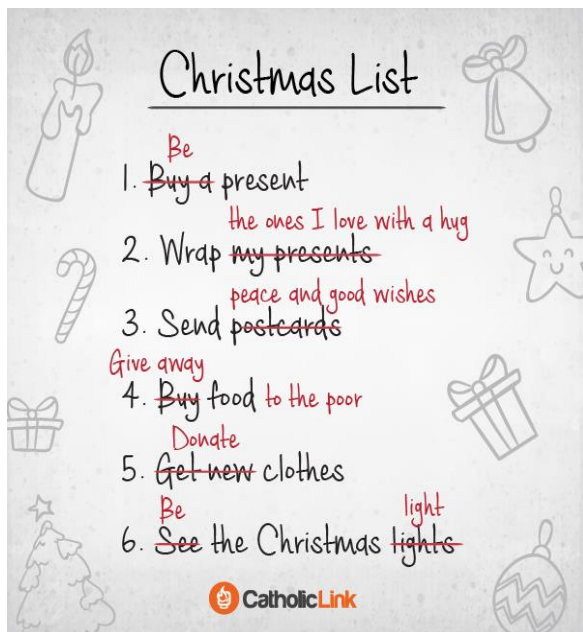 Christmas List
Be
1. Buy a present
the ones I love with a hug
2. Wrap my presents
peace and good wishes
3. Send postcards
Give away
4. Buy food to the poor
Donate
5. Get new clothes
Be light
6. See the Christmas lights
CatholicLink